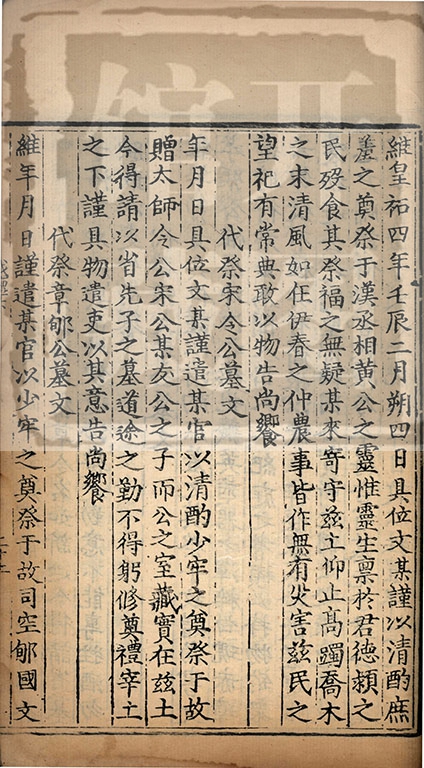 維皇祐四年壬辰二月朔四日具位文某謹以清酌庶
羞之奠祭于漢丞相黃公之靈惟靈生禀於君德潁之
民殁食其祭福之無疑某來寄守兹土仰止高躅喬木
之末清風如在伊春之仲農事皆作無有灾害兹民之
望祀有常典敢以物告尚饗
代祭宋令公墓文
年月日具位文某謹遣某官以清酌少牢之奠祭于故
贈太師令公宋公某友公之子而公之室藏實在兹土
今得請以省先子之墓道途之勤不得躬修奠禮宰土
之下謹具物遣吏以其意告尚饗
代祭章郇公墓文
維年月日謹遣某官以少牢之奠祭于故司空郇國文